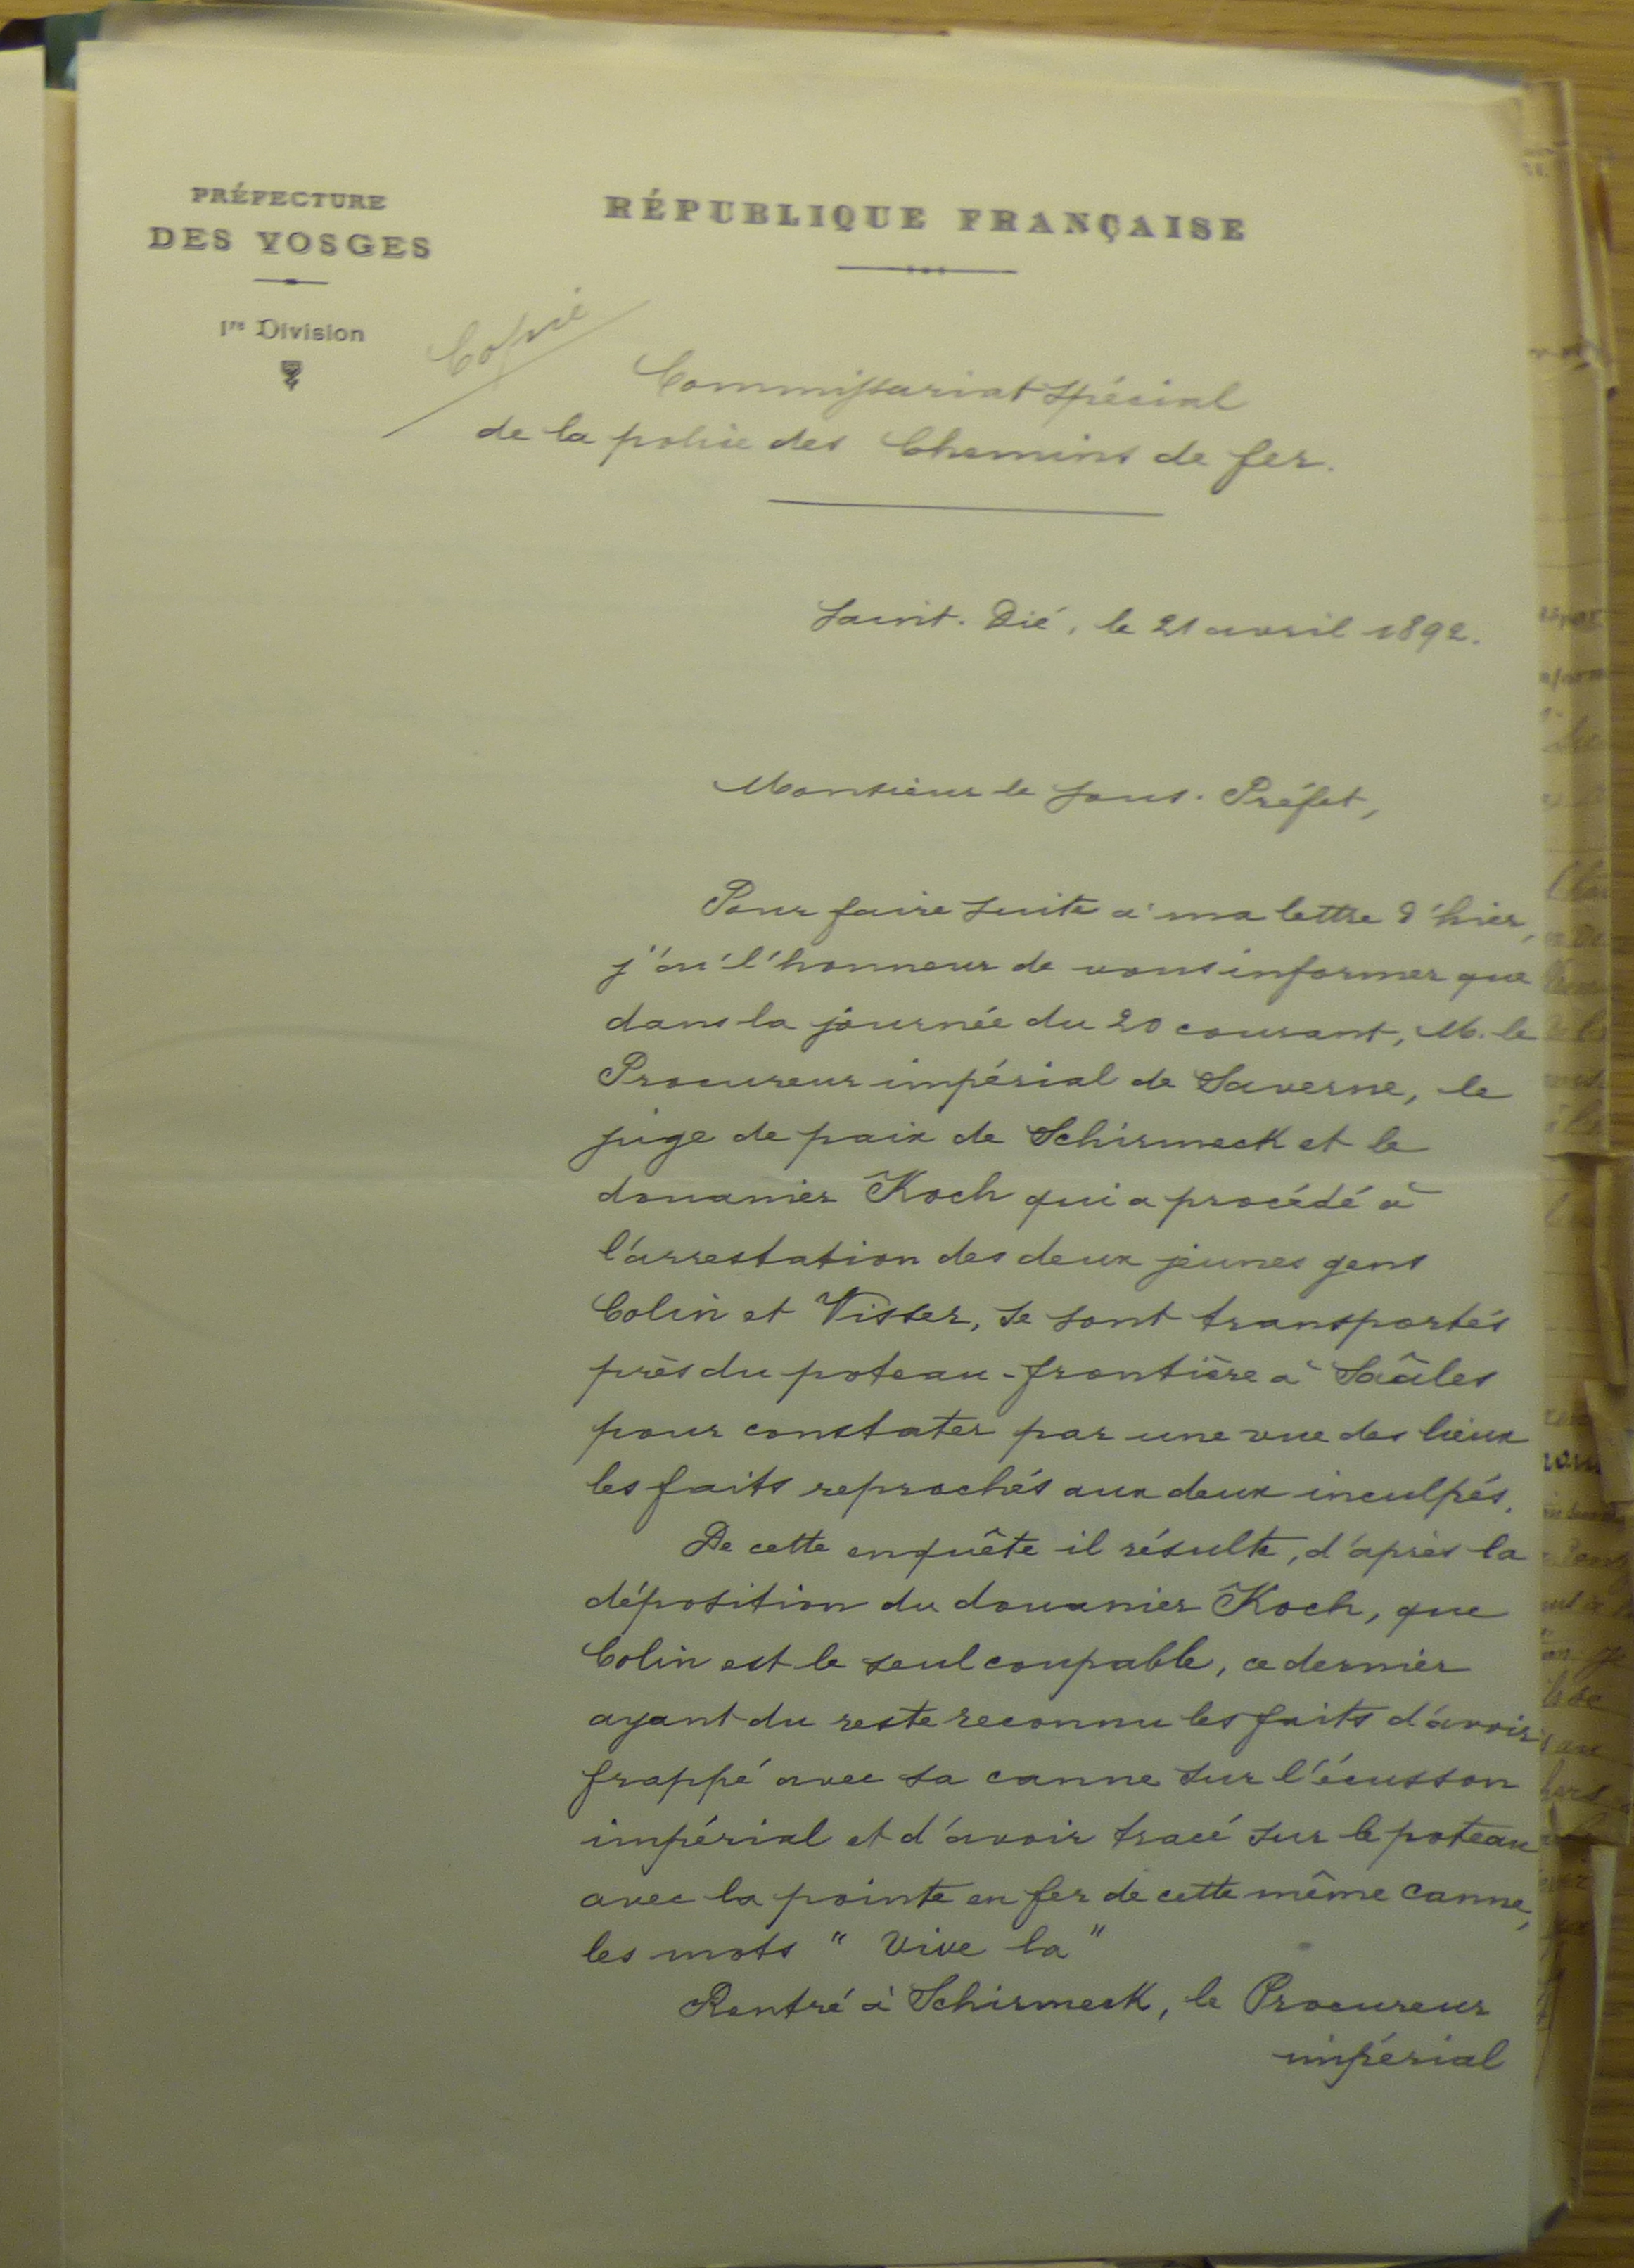 PRÉFECTURE
DES VOSGES
1re Division
RÉPUBLIQUE FRANÇAISE
Copie
Commissariat spécial
de la police des Chemins de fer.
Saint-Dié, le 21 avril 1892.
Monsieur le Sous-Préfet,
Pour faire suite à ma lettre d'hier,
j'ai l'honneur de vous informer que
dans la journée du 20 courant, M. le
Procureur impérial de Saverne, le
juge de paix de Schirmeck et le
douanier Koch qui a procédé à
l'arrestation des deux jeunes gens
Colin et Visser, se sont transportés
près du poteau-frontière à Saâles
pour constater par une vue des lieux
les faits reprochés aux deux inculpés.
De cette enquête il résulte, d'après la
déposition du douanier Koch, que
Colin est le seul coupable, ce dernier
ayant du reste reconnu les faits d'avoir
frappé avec sa canne sur l'écusson
impérial et d'avoir tracé sur le poteau
avec la pointe en fer de cette même canne,
les mots " Vive la "
Rentré à Schirmeck, le Procureur
impérial